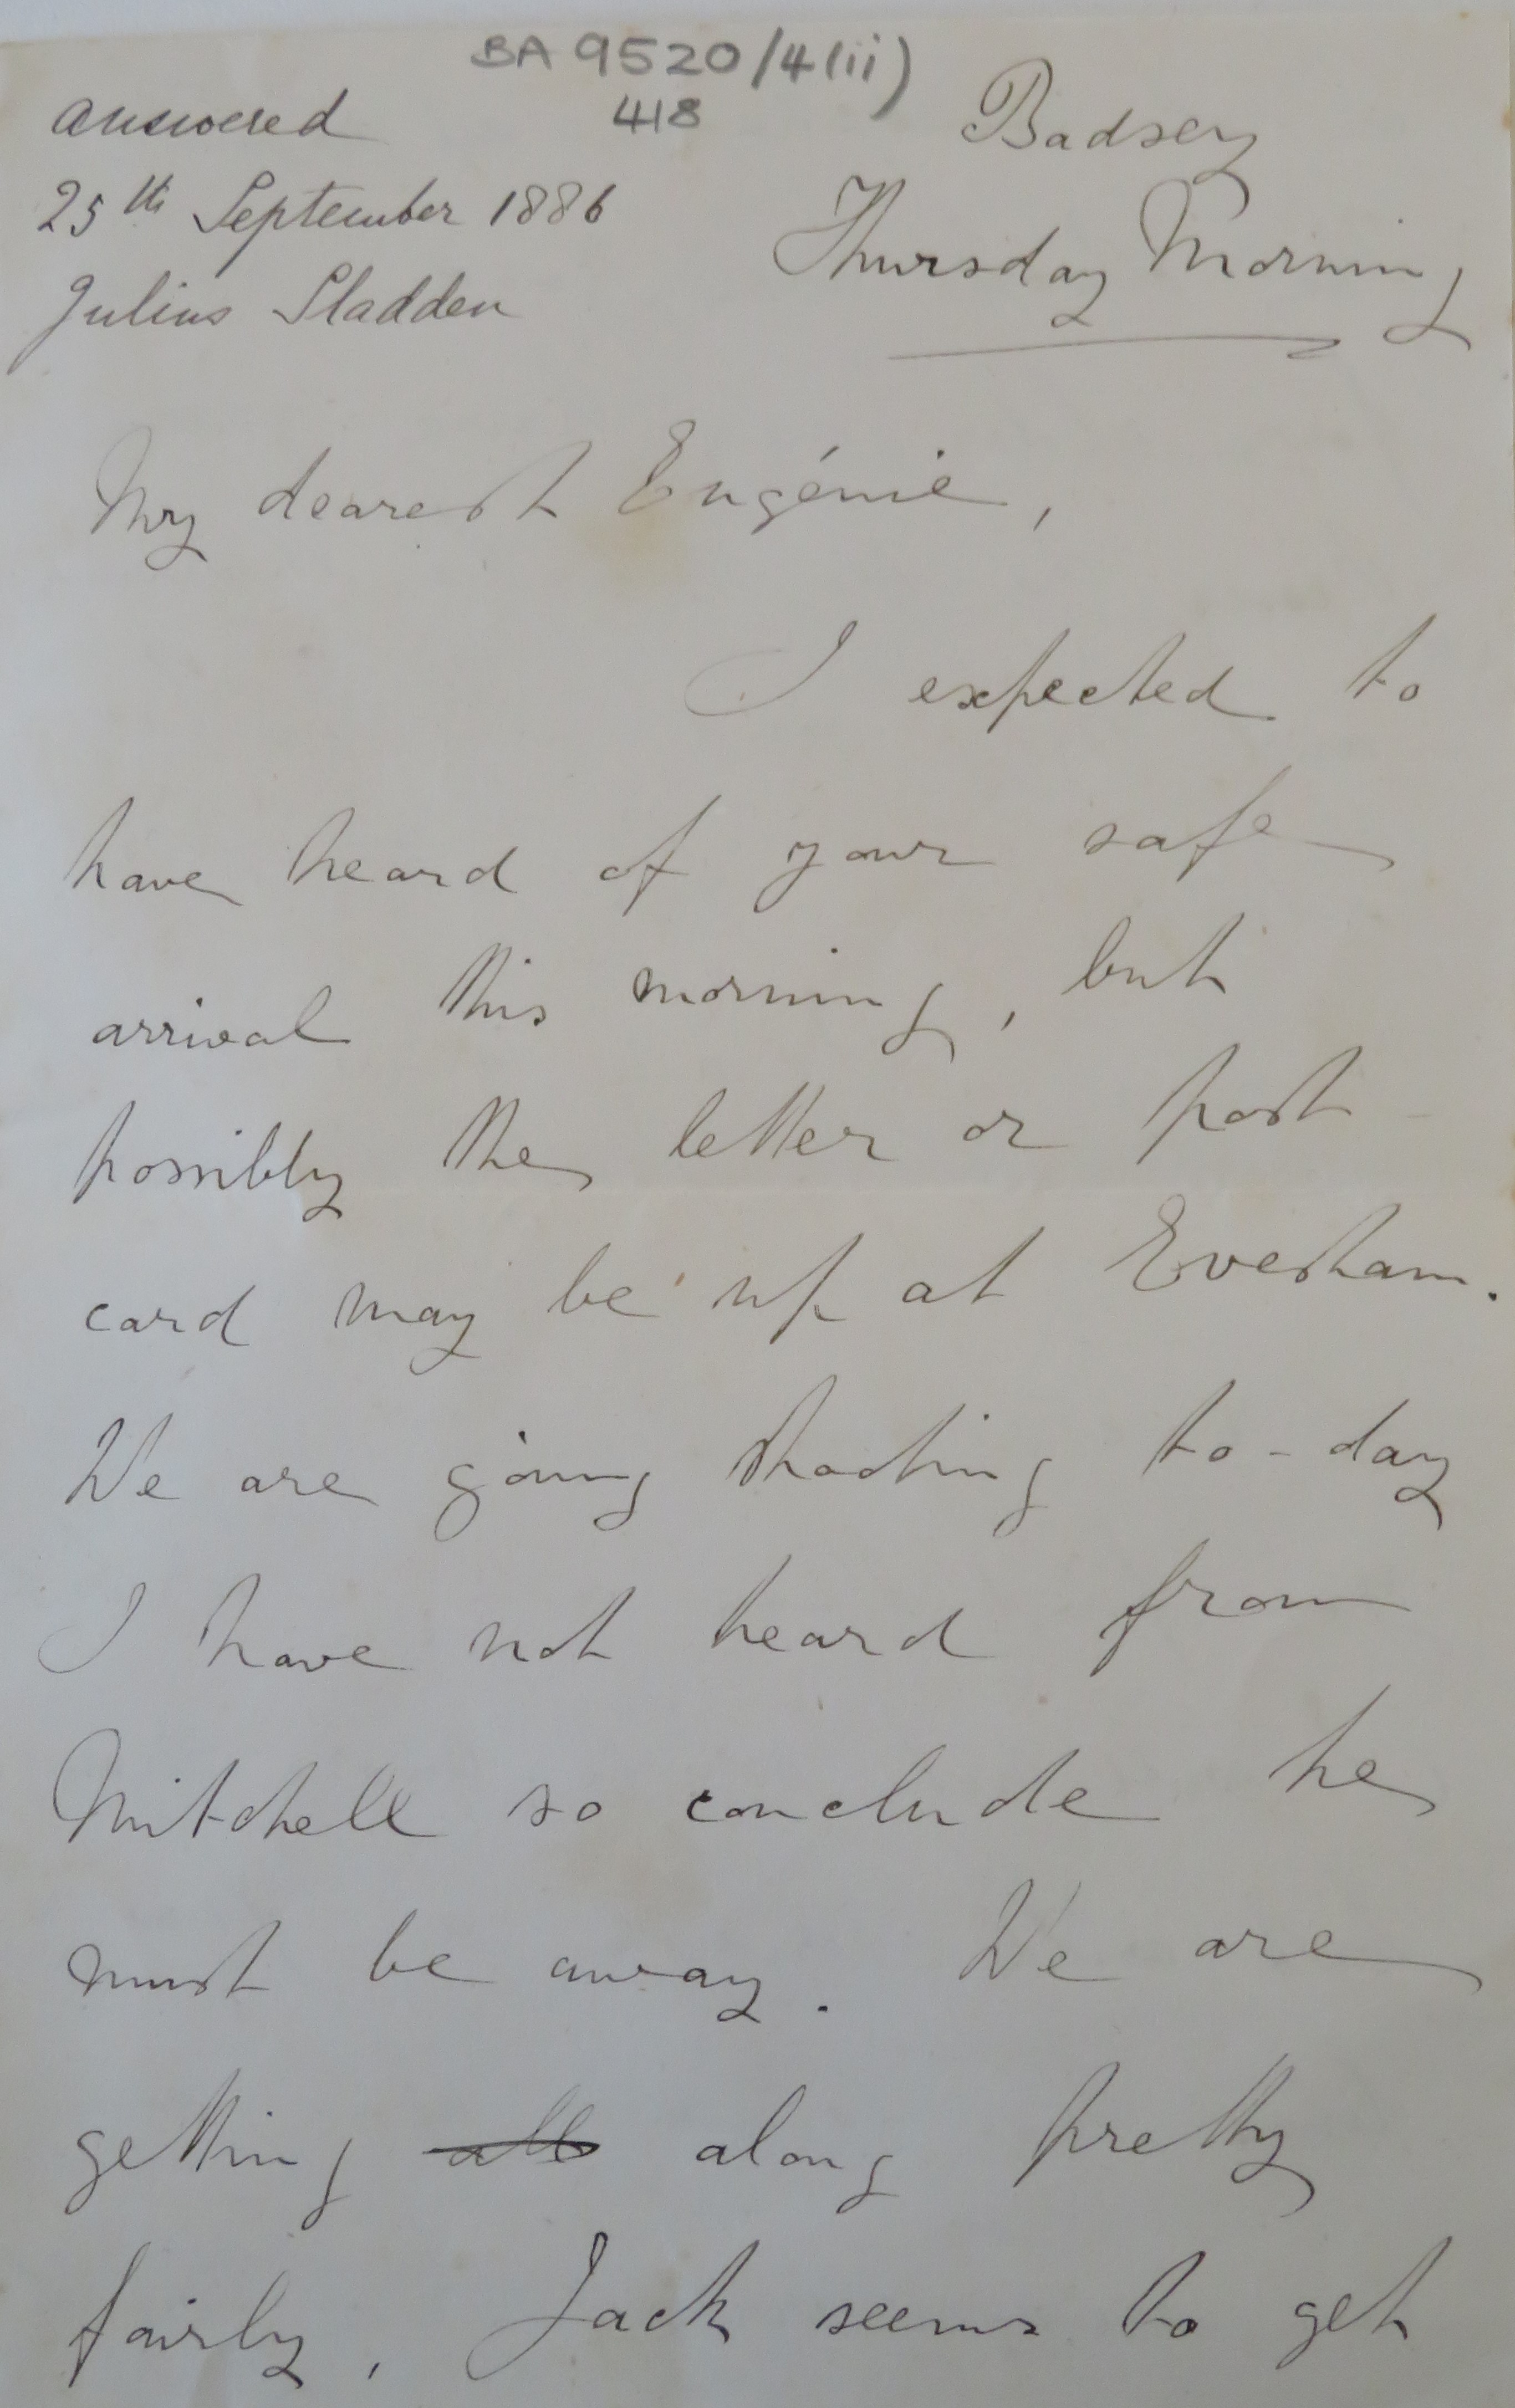 BA 9520/4(ii)
418
answered
25th September 1886
Julius Sladden
Badsey
Thursday Morning
My dearest Eugénie,
I expected to
have heard of your safe
arrival this morning, but
possibly the letter or post
card may be up at Evesham.
We are going shooting to-day
I have not heard from
Mitchell so conclude he
must be away. We are
getting all along pretty
fairly, Jack seems to get